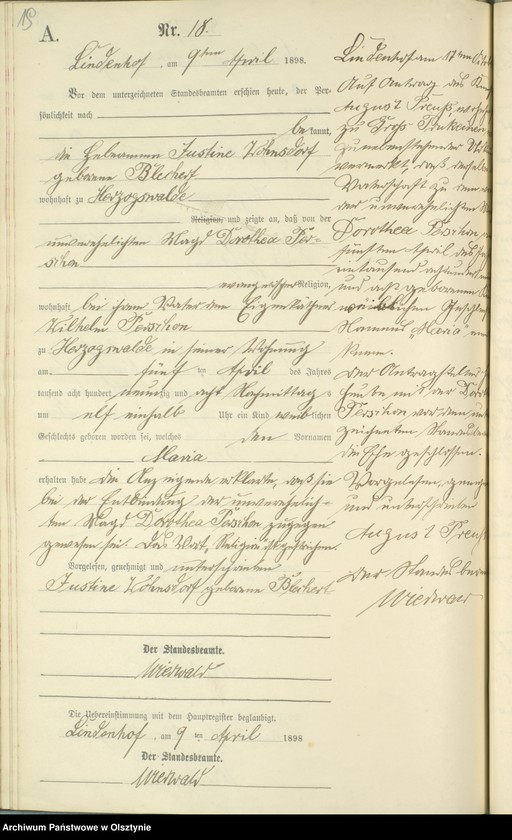 15
A.
Nr. 18.
Lindenhof, am 9ten April 1898.
Vor dem unterzeichneten Standesbeamten erschien heute, der Per-
sönlichkeit nach
bekannt,
die Hebeamme Justine Kohnsdorf
geborene Blechert
wohnhaft zu Herzogswalde
Religion, und zeigte an, daß von der
unverehelichten Magd Dorothea Per-
schon
evangelischer Religion,
wohnhaft bei ihrem Vater dem Eigenkäthner
Wilhelm Perschon
zu Herzogswalde in seiner Wohnung
am fünf ten April des Jahres
tausend acht hundert neunzig und acht Nachmittag s
um elf einhalb Uhr ein Kind weiblichen
Geschlechts geboren worden sei, welches den Vornamen
Maria
erhalten habe. Die Anzeigende erklärte, daß sie
bei der Entbindung der unverehelich-
ten Magd Dorothea Perschon zugegen
gewesen sei. Das Wort „Religion“ ist gestrichen.
Vorgelesen, genehmigt und unterschrieben
Justine Kohnsdorf geborene Blechert
Der Standesbeamte.
Wiedwald
Die Uebereinstimmung mit dem Hauptregister beglaubigt.
Lindenhof, am 9 ten April 1898
Der Standesbeamte.
Wiedwald
Lindenhof am 17ten
Auf Antrag des
August Preuß, wohnhaft
zu Groß
vermerkt, daß derselbe
Vaterschaft zu dem
der unverehelichten
Dorothea Perschon
fünften April des
eintausend achthundert
und acht geborenen
weiblichen Geschlechts
Namens „Maria“
kenne.
Der Antragsteller
heute mit der
Perschon vor dem unter-
zeichneten Standesbeamten
die Ehe geschlossen.
Vorgelesen, genehmigt
und unterschrieben
August Preuß
Der Standesbeamte
Wiedwald
Archiwum Państwowe w Olsztynie